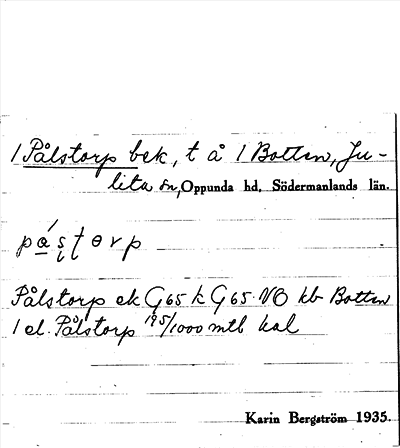 1 Pålstorp bek, t å 1 Botten, Ju-
lita sn, Oppunda hd. Södermanlands län.
på̱ʂʈɵrp
Pålstorp ek G65 k G65 NO kb Botten
1 el. Pålstorp 195/1000 mtl kal
Karin Bergström 1935.